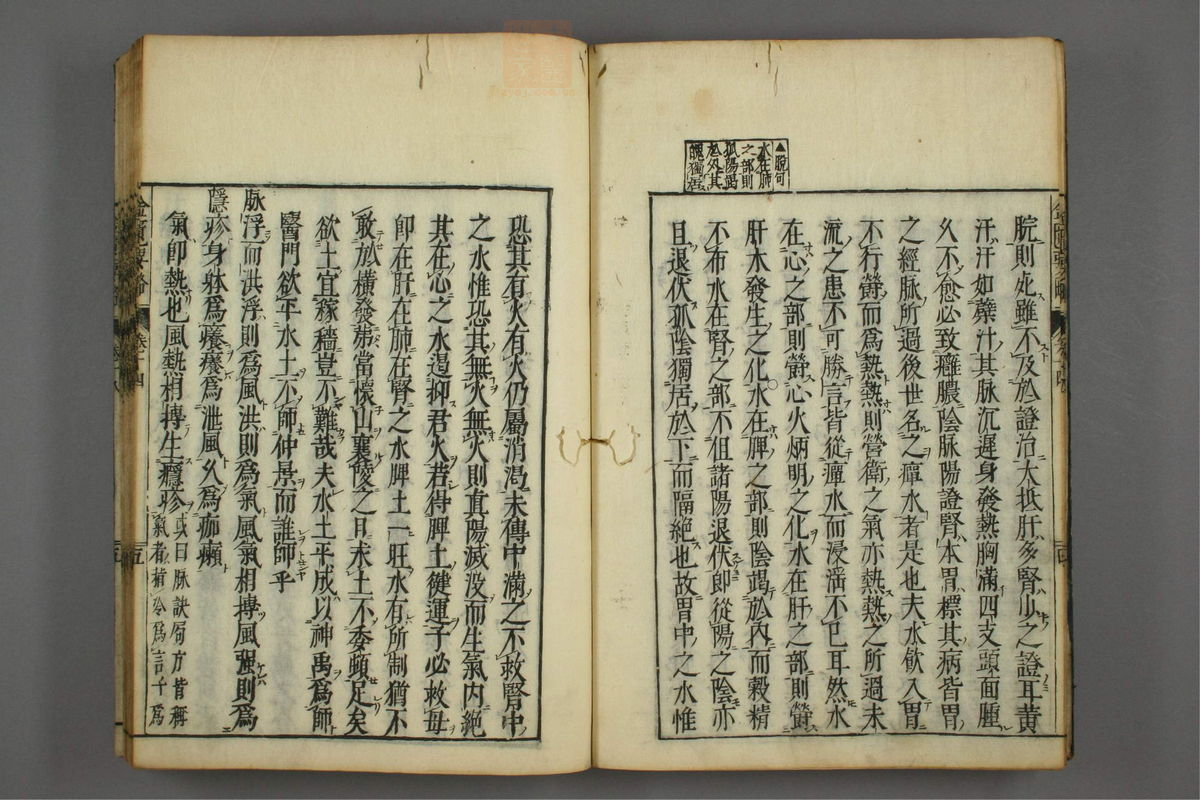 ▲脫句
水在肺
之部則
孤陽竭
於外其
魄獨居
脘則処雖不及於證治大抵肝多腎少之證耳黃
汗汗如蘗汁其脉沉遲身發熱胸滿四支頭面腫
久不愈必致癰膿陰脉陽證腎本胃標其病皆胃
之經脉所過後世名之癉水者是也夫水飲入胃
不行欝而為熱熱則營衛之氣亦熱熱之所過末
流之患不可勝言皆從癉水而浸淫不已耳然水
在心之部則欝心火炳明之化水在肝之部則欝
肝木發生之化水在脾之部則陰竭於內而穀精
不布水在腎之部不但諸陽退伏即從陽之陰亦
且退伏孤陰獨居於下而隔絕也故胃中之水惟
恐其有火有火仍屬消渴末傳中滿之不救腎中
之水惟恐其無火無火則真陽滅沒而生氣內絕
其在心之水遏抑君火若得脾土健運子必救母
即在肝在肺在腎之水脾土一旺水有所制猶不
敢於橫發第當懷山襄陵之日求土不委頓足矣
欲土宜稼穡豈不難哉夫水土平成以神禹為師
醫門欲平水土不師仲景而誰師乎
脉浮而洪浮則為風洪則為氣風氣相搏風强則為
隱疹身躰為癢癢為泄風久為痂癩
氣即熱也風熱相搏生癮疹或曰脉訣局方皆稱
氣者積冷為言千為
金匱要略
卷十四
五